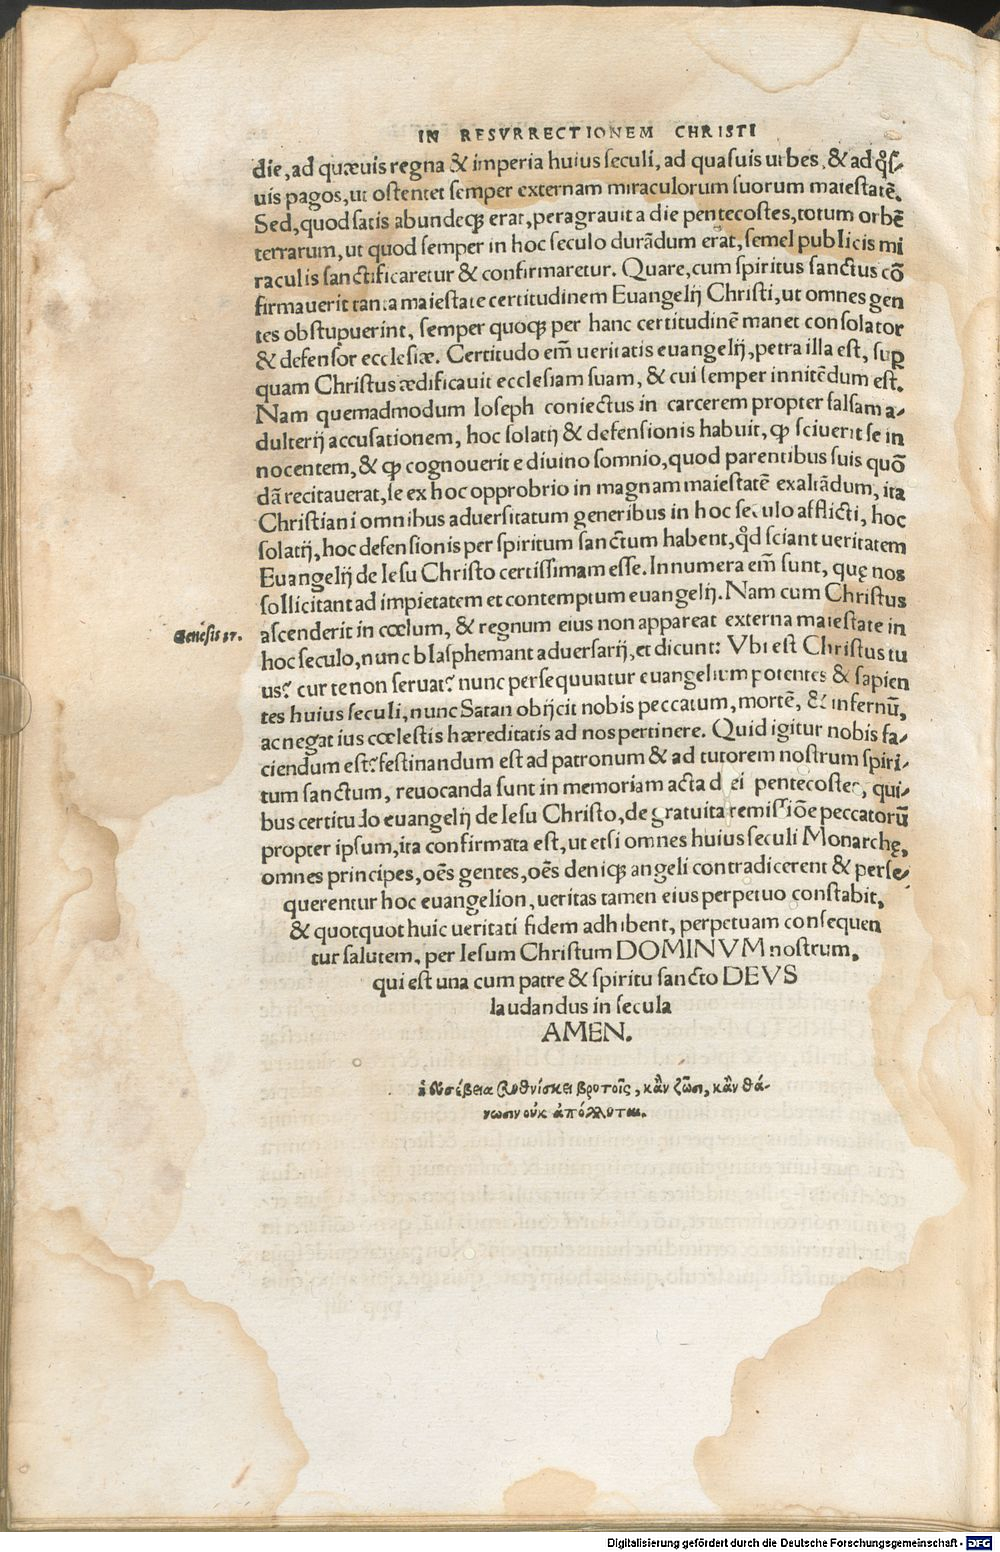 IN RESVRRECTIONEM CHRISTI
die, ad quæuis regna & imperia huius seculi, ad quasuis urbes, & ad ꝗ̃s-
uis pagos, ut ostentet semper externam miraculorum suorum maiestatē.
Sed, quod satis abundeqꝫ erat, peragrauit a die pentecostes, totum orbē
terrarum, ut quod semper in hoc seculo durādum erat, semel publicis mi
raculis sanctificaretur & confirmaretur. Quare, cum spiritus sanctus cō
firmauerit tanta maiestate certitudinem Euangelij Christi, ut omnes gen
tes obstupuerint, semper quoqꝫ per hanc certitudinē manet consolator
& defensor ecclesiæ. Certitudo em̄ ueritatis euangelij, petra illa est, suꝑ
quam Christus ædificauit ecclesiam suam, & cui semper innitēdum est.
Nam quemadmodum Ioseph coniectus in carcerem propter falsam a-
dulterij accusationem, hoc solatij & defensionis habuit, ꝙ sciuerit se in
nocentem, & ꝙ cognouerit e diuino somnio, quod parentibus suis quō
dā recitauerat, se ex hoc opprobrio in magnam maiestatē exaltādum, ita
Christiani omnibus aduersitatum generibus in hoc seculo afflicti, hoc
solatij, hoc defensionis per spiritum sanctum habent, ꝙd sciant ueritatem
Euangelij de Iesu Christo certissimam esse. Innumera em̄ sunt, quę nos
sollicitant ad impietatem et contemptum euangelij. Nam cum Christus
Genesis 37.
ascenderit in cœlum, & regnum eius non appareat externa maiestate in
hoc seculo, nunc blasphemant aduersarij, et dicunt: Vbi est Christus tu
us? cur te non seruat? nunc persequuntur euangelium potentes & sapien
tes huius seculi, nunc Satan obijcit nobis peccatum, mortē, & infernū,
ac negat ius cœlestis hæreditatis ad nos pertinere. Quid igitur nobis fa-
ciendum est? festinandum est ad patronum & ad tutorem nostrum spiri-
tum sanctum, reuocanda sunt in memoriam acta diei pentecostes, qui-
bus certitudo euangelij de Iesu Christo, de gratuita remissiōe peccatorū
propter ipsum, ita confirmata est, ut etsi omnes huius seculi Monarchę,
omnes principes, oēs gentes, oēs deniqꝫ angeli contradicerent & perse-
querentur hoc euangelion, ueritas tamen eius perpetuo constabit,
& quotquot huic ueritati fidem adhibent, perpetuam consequen
tur salutem, per Iesum Christum DOMINVM nostrum,
qui est una cum patre & spiritu sancto DEVS
laudandus in secula
AMEN.
ἡ ἐυσέβεια συνθνίσκει βροτοῖς, κἂν ζῶσι, κἂν θά-
νωσιν οὐκ ἀπόλλυται.
Digitalisierung gefördert durch die Deutsche Forschungsgemeinschaft - DFG